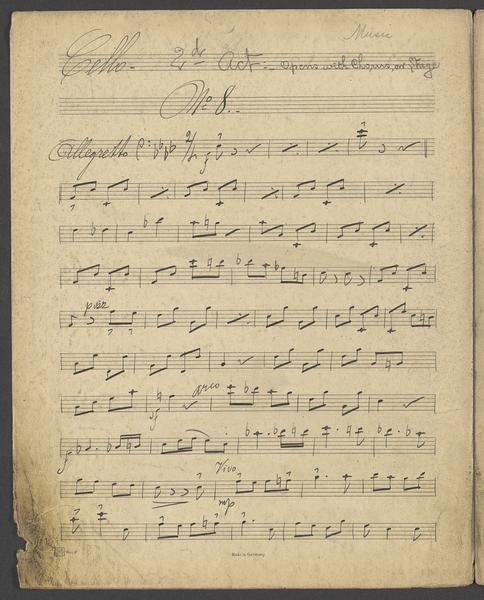 Music
Cello - 2dr Act:- Opens with Chorus on Stage
No 8.-
Allegretto 2/4 f
pizz
arco
sf
f
Vivo
mp
Made in Germany